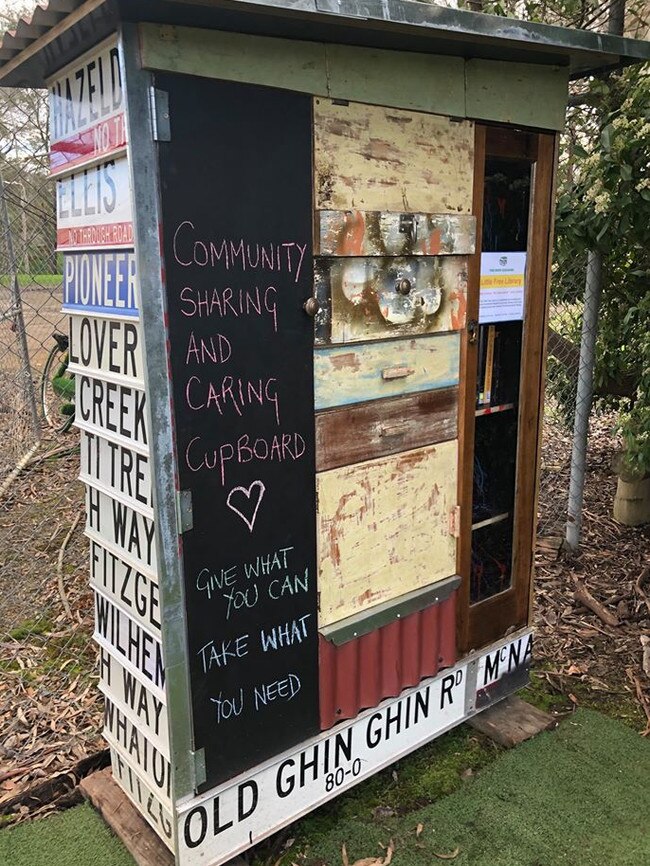 HAZELD
NO T
ELLIS
NO THROUGH ROAD
PIONEER
LOVER
CREEK
TI TRE
H WAY
FITZGE
WILHEN
H WAY
WHATO
FITZG
COMMUNITY
SHARING
AND
CARING
CUPBOARD
GIVE WHAT
YOU CAN
TAKE WHAT
YOU NEED
Little Free Library
OLD GHIN GHIN RD
80-0
McNA